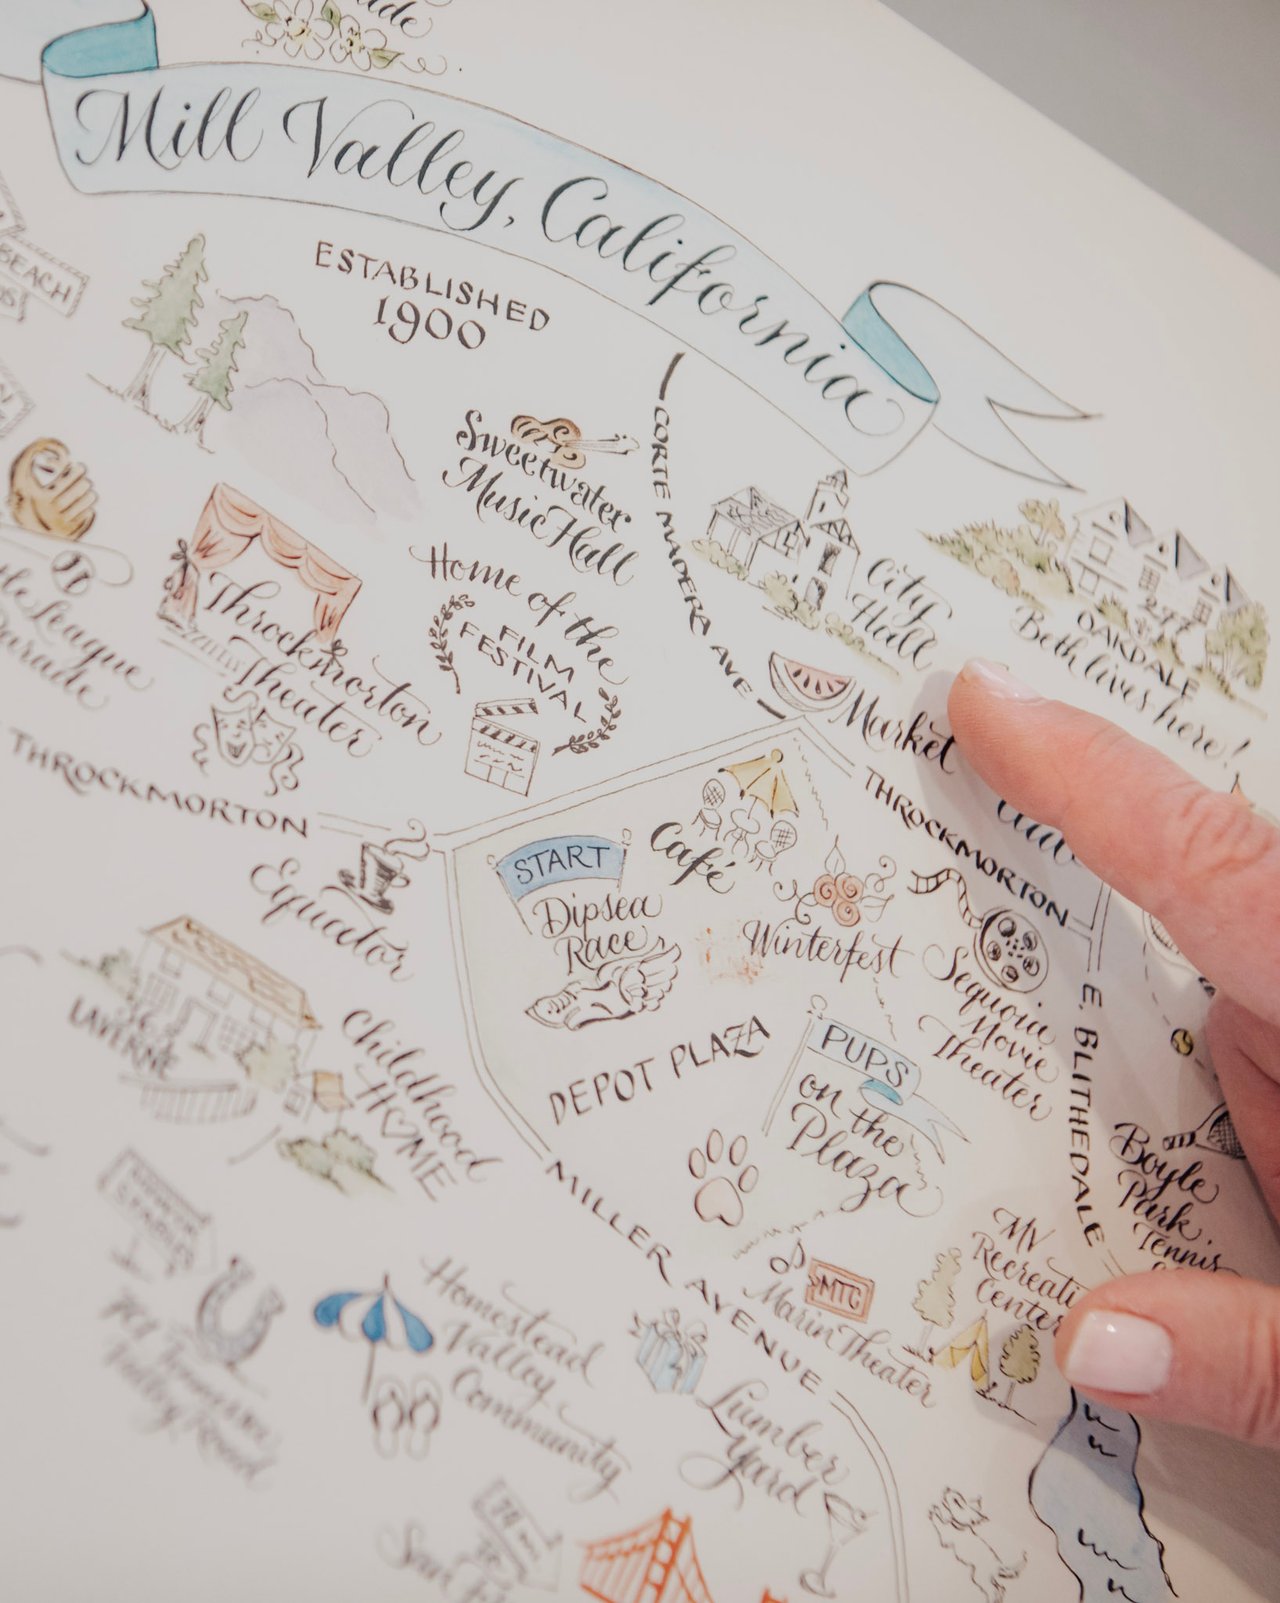 Mill Valley, California
ESTABLISHED
1900
BEACH
CORTE MADERA AVE
Sweetwater
Music Hall
City
Hall
277
OAKDALE
Beth lives here!
Home of the
FILM
FESTIVAL
Throckmorton
Theater
League
Parade
Market
THROCKMORTON
THROCKMORTON
Equator
START
Dipsea
Race
Café
Winterfest
Sequoia
Movie
Theater
E. BLITHEDALE
LAVERNE
Childhood
HOME
DEPOT PLAZA
PUPS
on the
Plaza
Boyle
Park
Tennis
MILLER AVENUE
MV
Recreati
Center
MTC
Marin Theater
Homestead
Valley
Community
Lumber
Yard